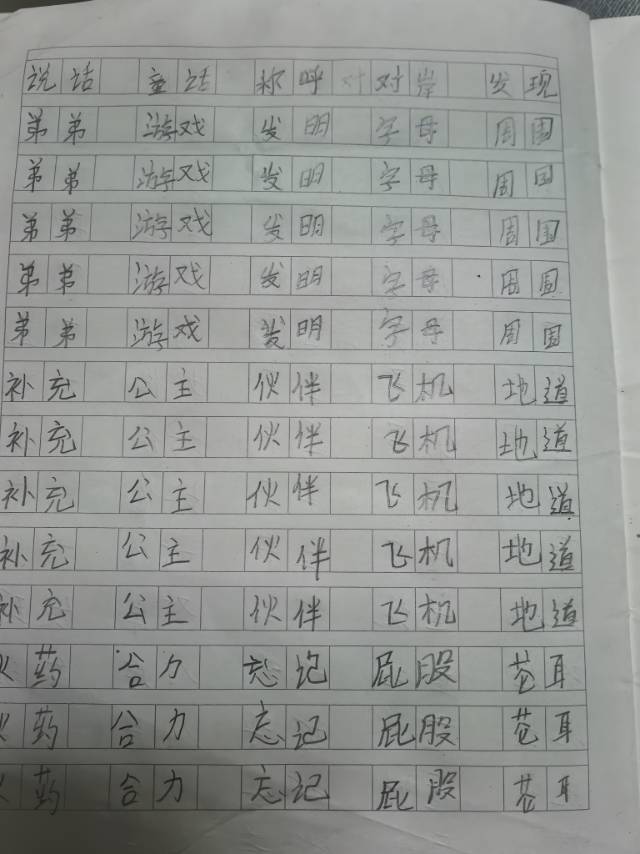 说话 童话 称呼 对对岸 发现
弟弟 游戏 发明 字母 周围
弟弟 游戏 发明 字母 周围
弟弟 游戏 发明 字母 周围
弟弟 游戏 发明 字母 周围
弟弟 游戏 发明 字母 周围
补充 公主 伙伴 飞机 地道
补充 公主 伙伴 飞机 地道
补充 公主 伙伴 飞机 地道
补充 公主 伙伴 飞机 地道
补充 公主 伙伴 飞机 地道
火药 合力 忘记 屁股 苍耳
火药 合力 忘记 屁股 苍耳
火药 合力 忘记 屁股 苍耳